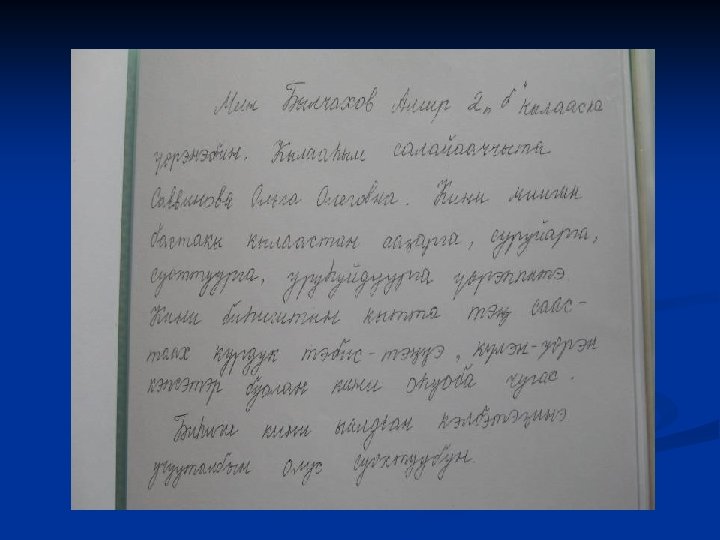 Мин Былчахов Амир 2 "б" кылааска
үөрэнэбин. Кылааһым салайааччыта
Саввинова Ольга Олеговна. Кини миигин
бастакы кылаастан ааҕарга, суруйарга,
суоттуурга, уруһуйдуурга үөрэппитэ.
Кини биһигитин кытта тэҥ саас-
таах курдук тэбис-тэҥҥэ, күлэн-үөрэн
кэпсэтэр буолан кини оҕоҕо чугас.
Биһиги кини ыалдьан кэлбэтэҕинэ
учууталбын олус суохтуубун.